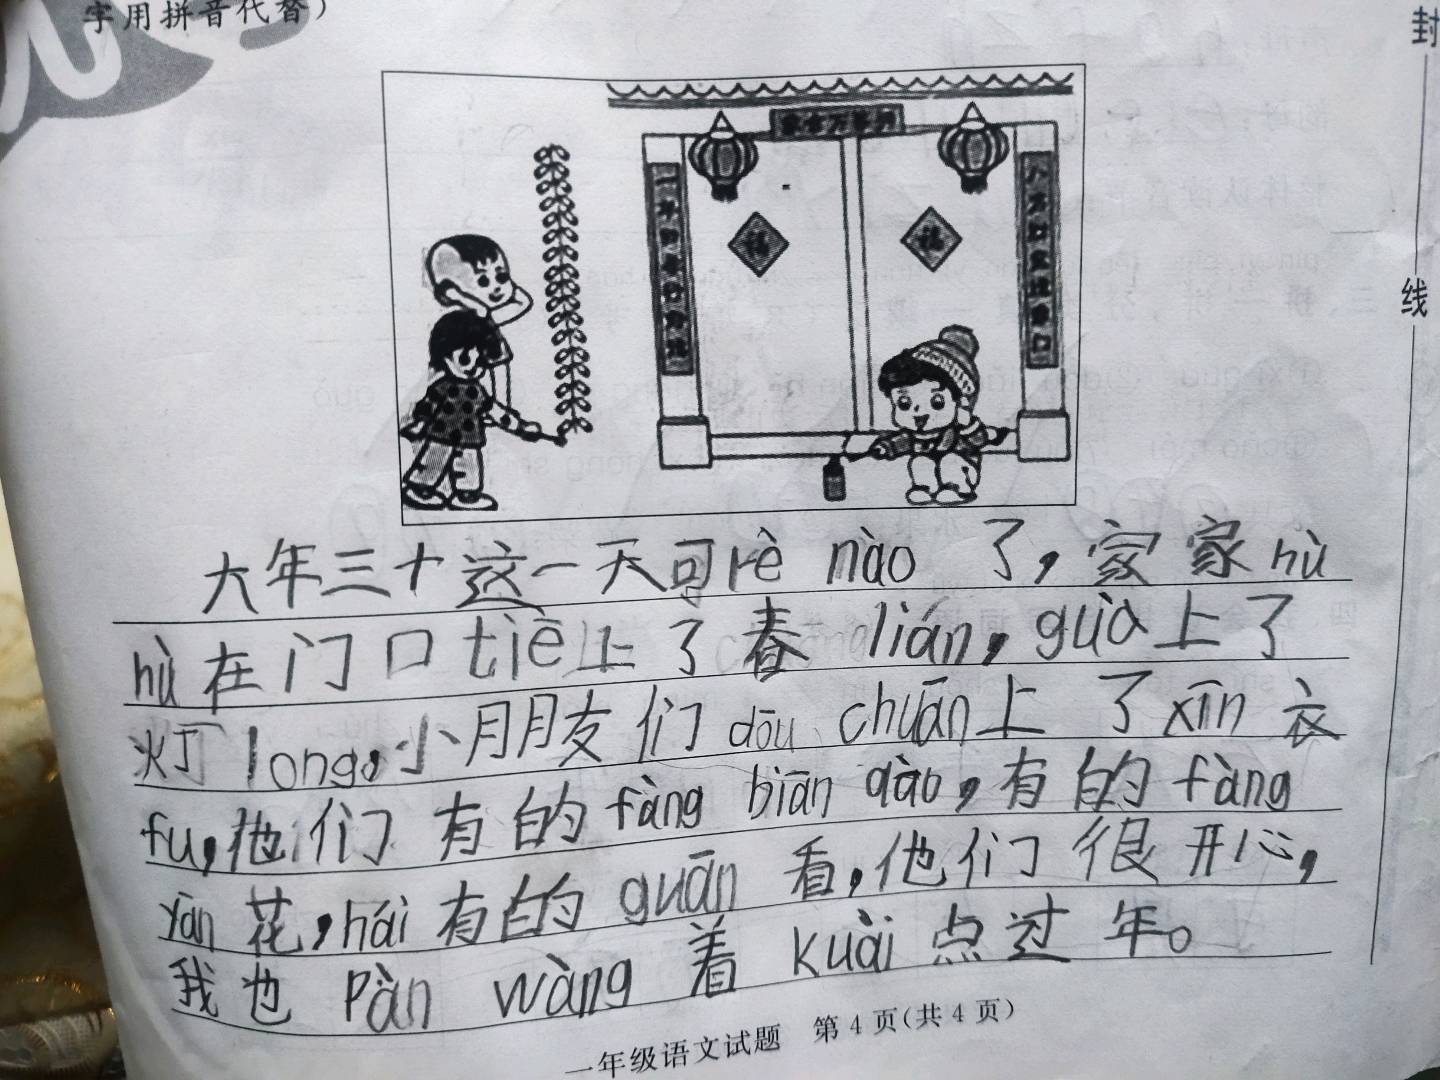 字用拼音代替）
封
线
福
福
大年三十这一天可rè nào 了，家家hù
hù 在门口tiē上了春 lián，guà上了
灯 longo，小朋友们dōu chuān上了xīn 衣
fu，他们有的fàng biān qào，有的fàng
yān 花，hái有的guān 看，他们很开心，
我也 Pàn wàng 着 kuài 点过年。
一年级语文试题 第4页（共4页）